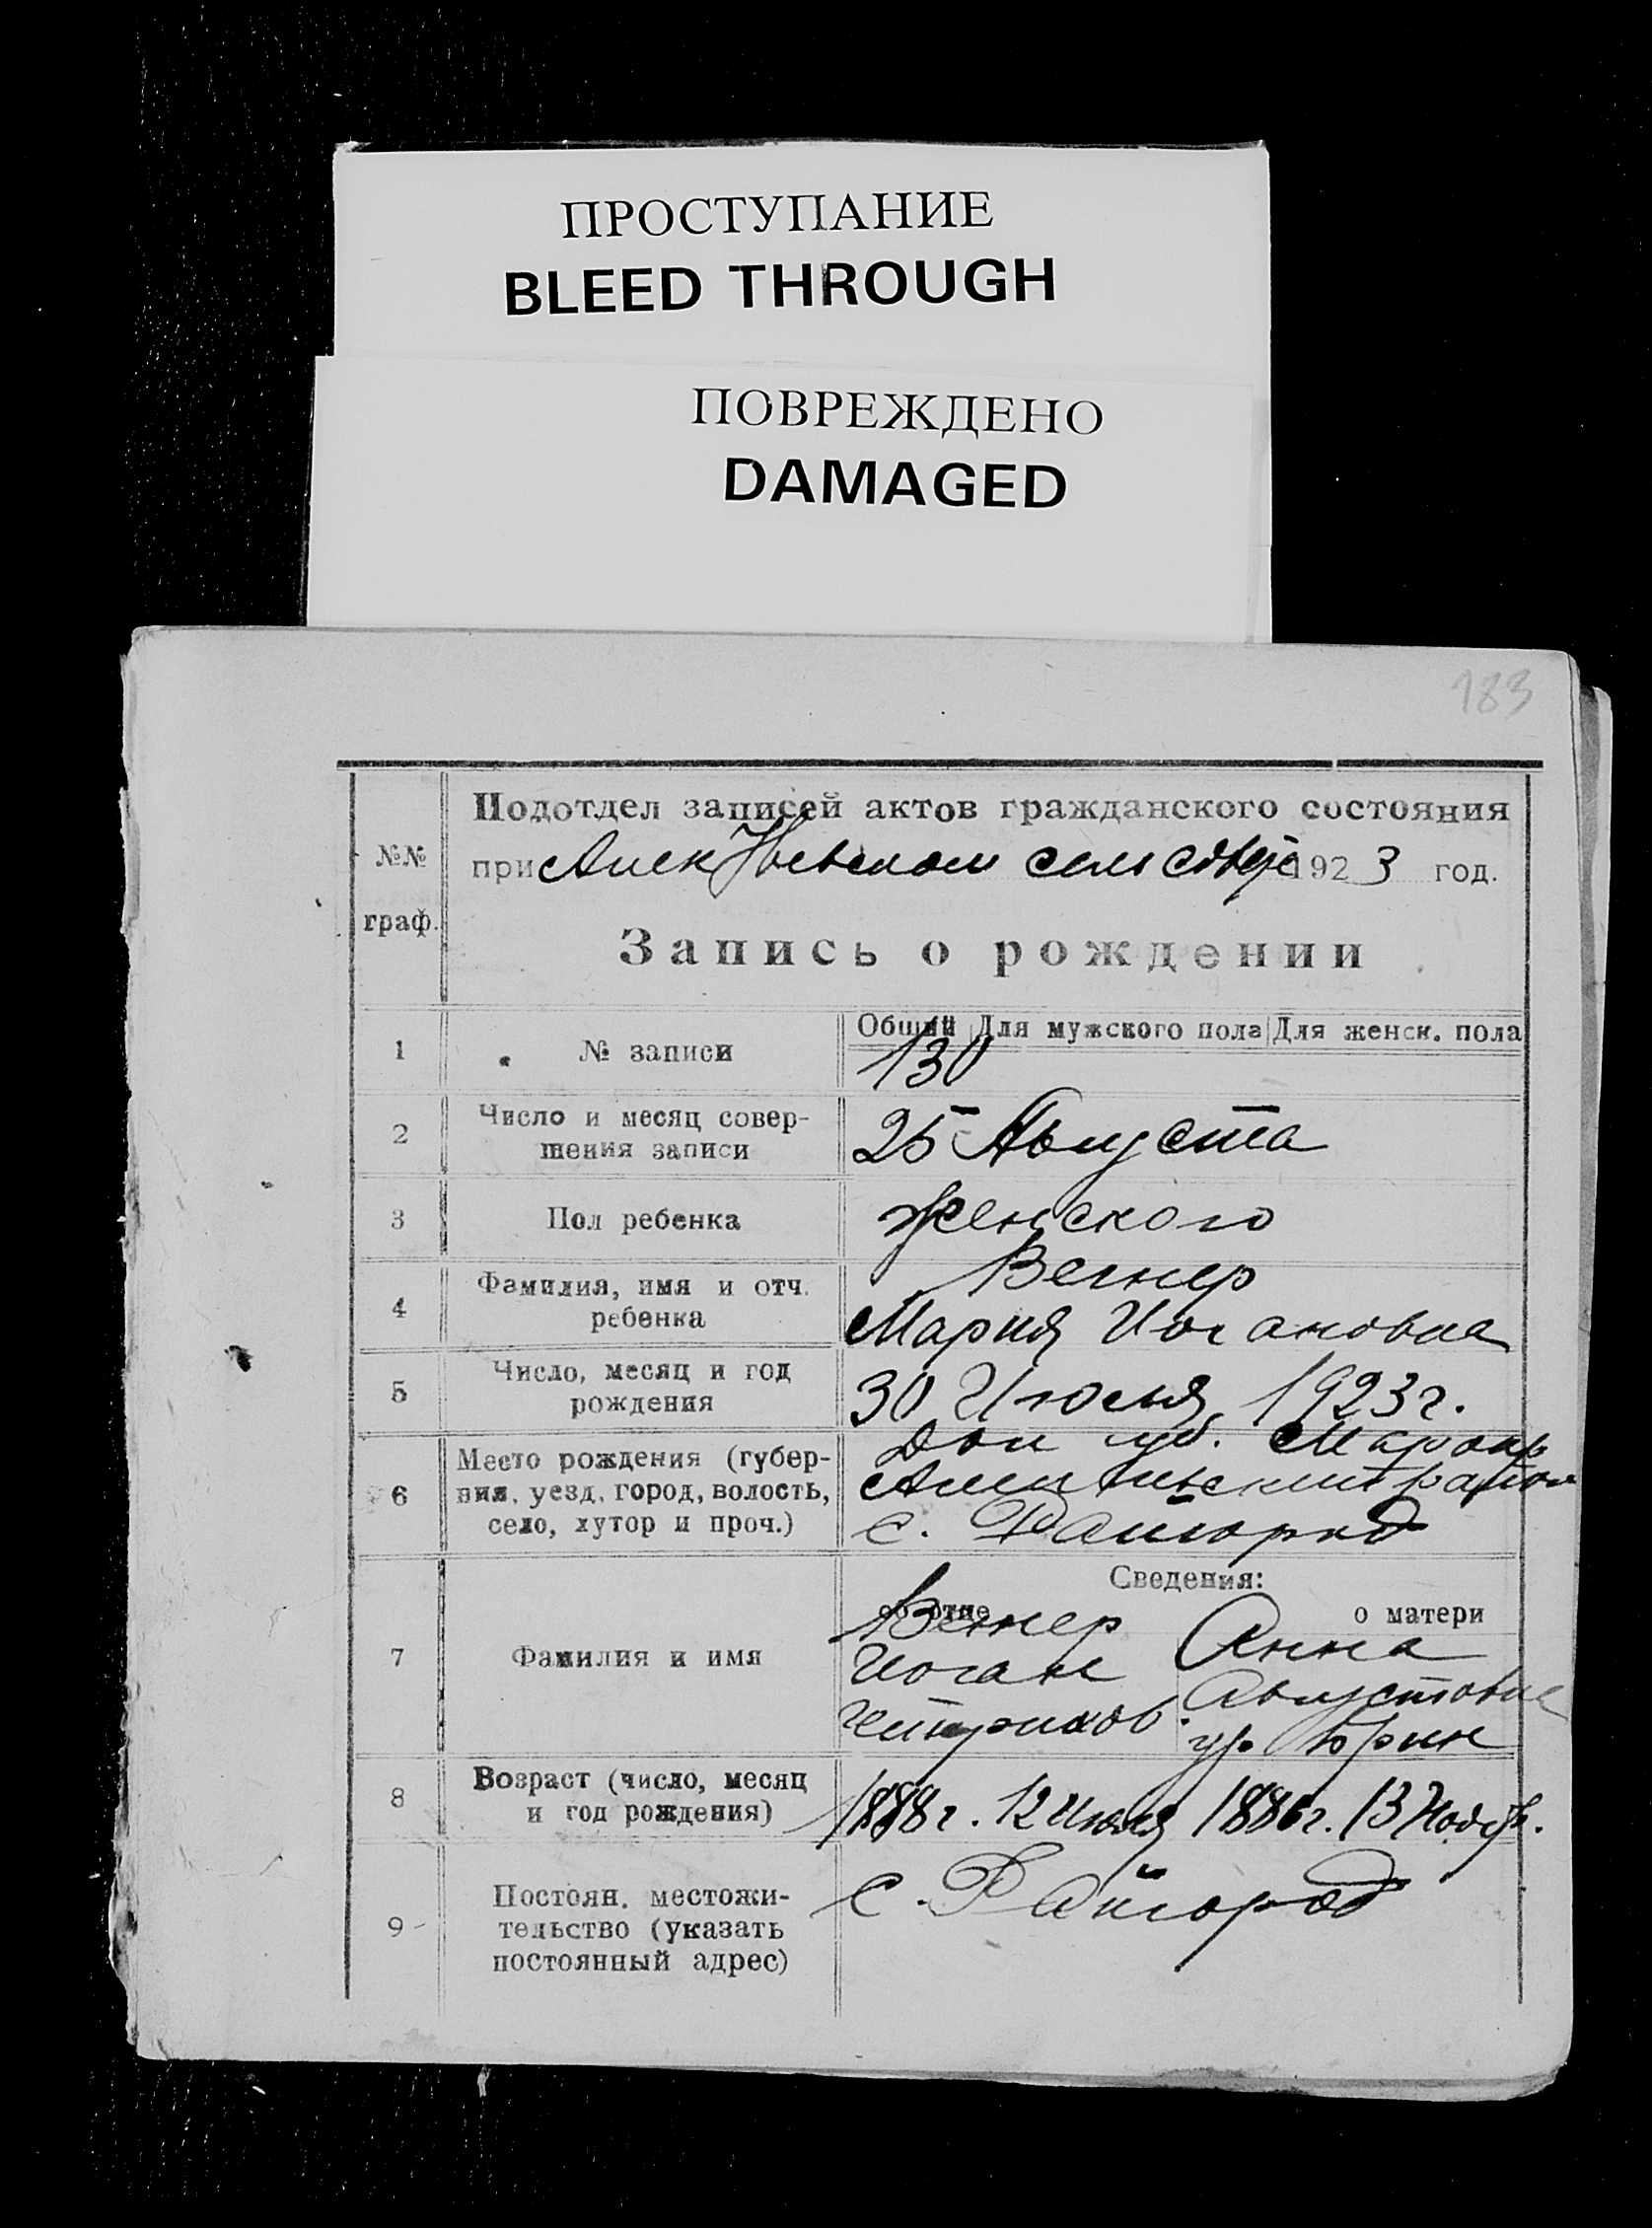 ПРОСТУПАНИЕ
BLEED THROUGH
ПОВРЕЖДЕНО
DAMAGED
183
№№ граф.
Подотдел записей актов гражданского состояния
при Алек Невском сель совете 1923 год.
Запись о рождении
Общий Для мужского пола Для женск. пола
1 № записи 130
2 Число и месяц совершения записи 25 Августа
3 Пол ребенка женского
4 Фамилия, имя и отч. ребенка Вегнер
Мария Иогановна
5 Число, месяц и год рождения 30 Июля 1923 г.
6 Место рождения (губерния, уезд, город, волость, село, хутор и проч.) Дон
район
с. Райгород
Сведения:
об отце о матери
7 Фамилия и имя Вегнер Анна
Иоган Августовна
ур. Брин
8 Возраст (число, месяц и год рождения) 1888 г. 12 Июля 1886 г. 13 Ноябр.
9 Постоян. местожительство (указать постоянный адрес) с. Райгород